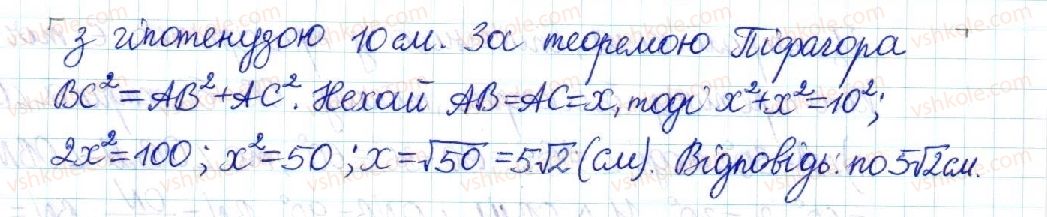 з гіпотенузою 10 см. За теоремою Піфагора
BC²=AB²+AC². Нехай AB=AC=x, тоді x²+x²=10²;
2x²=100; x²=50; x=√50=5√2 (см). Відповідь: по 5√2 см.